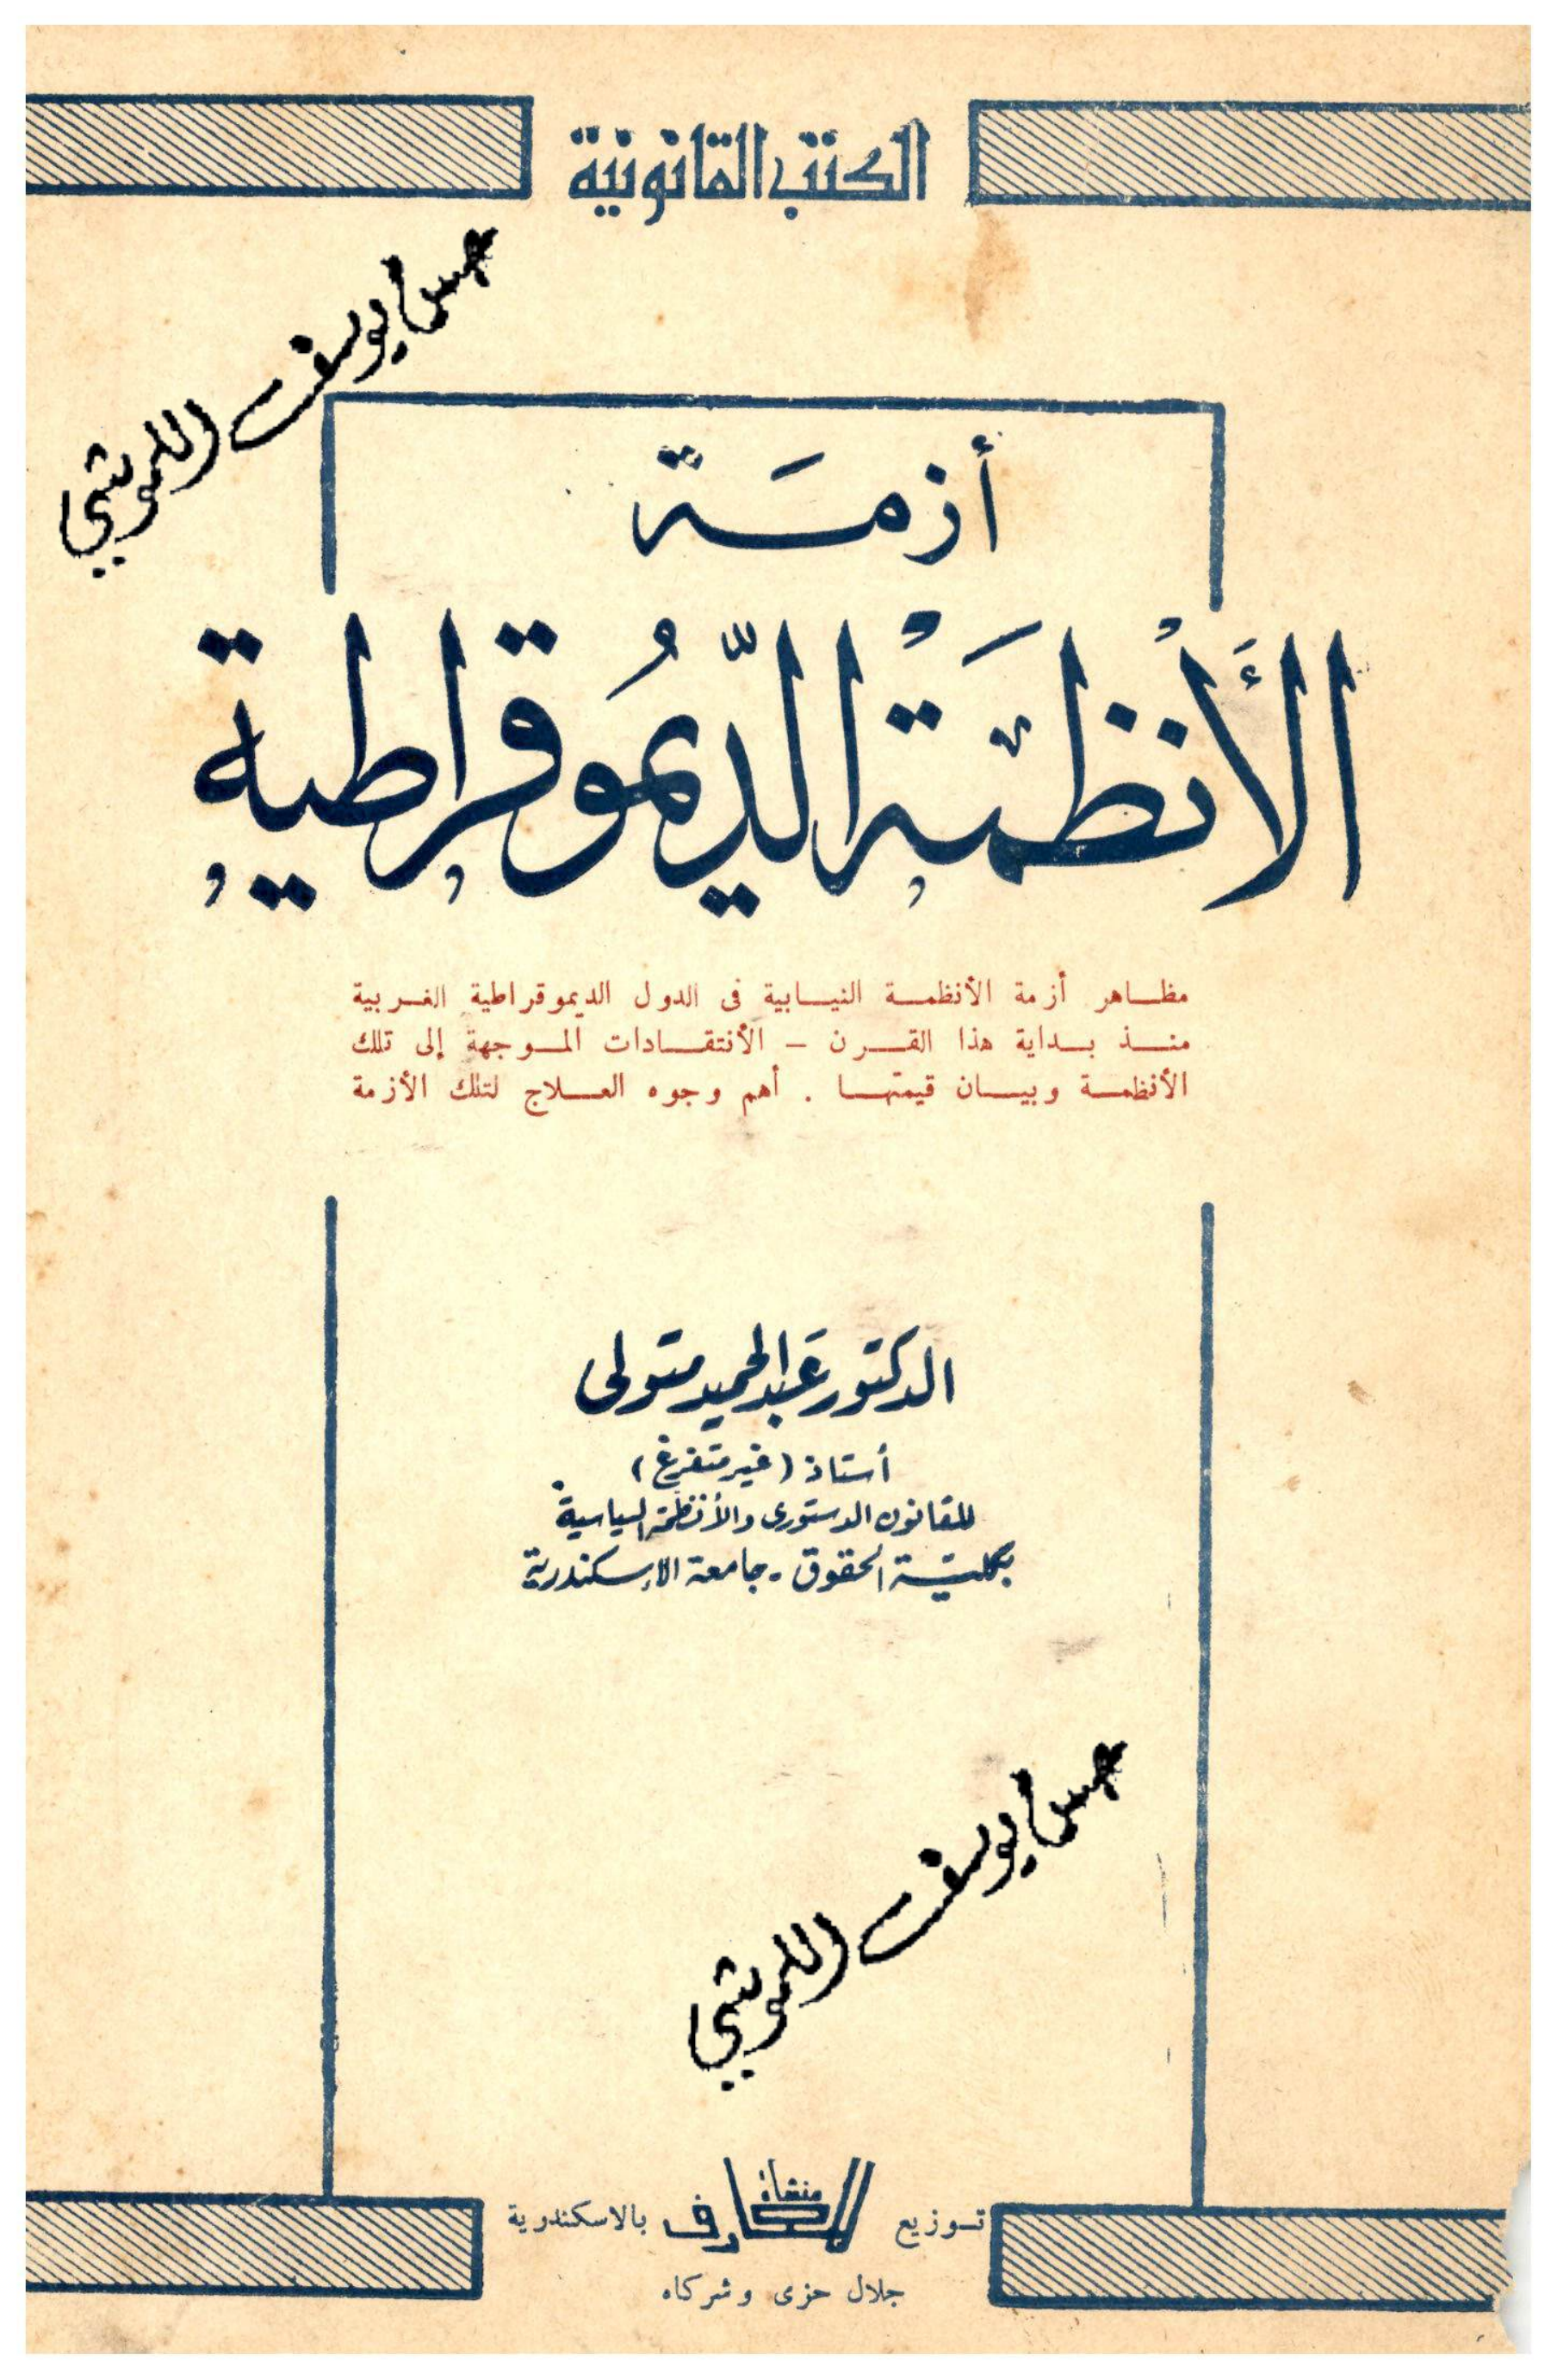 الكتب القانونية
أزمة
الأنظمة الديموقراطية
مظاهر أزمة الأنظمة النيابية فى الدول الديموقراطية الغربية
منذ بداية هذا القرن – الأنتقادات الموجهة إلى تلك
الأنظمة وبيان قيمتها . أهم وجوه العلاج لتلك الأزمة
الدكتور عبد الحميد متولى
أستاذ (غير متفرغ)
للقانون الدستورى والأنظمة السياسية
بكلية الحقوق - جامعة الإسكندرية
يوسف
يوسف
توزيع منشأة المعارف بالاسكندرية
جلال حزى وشركاه